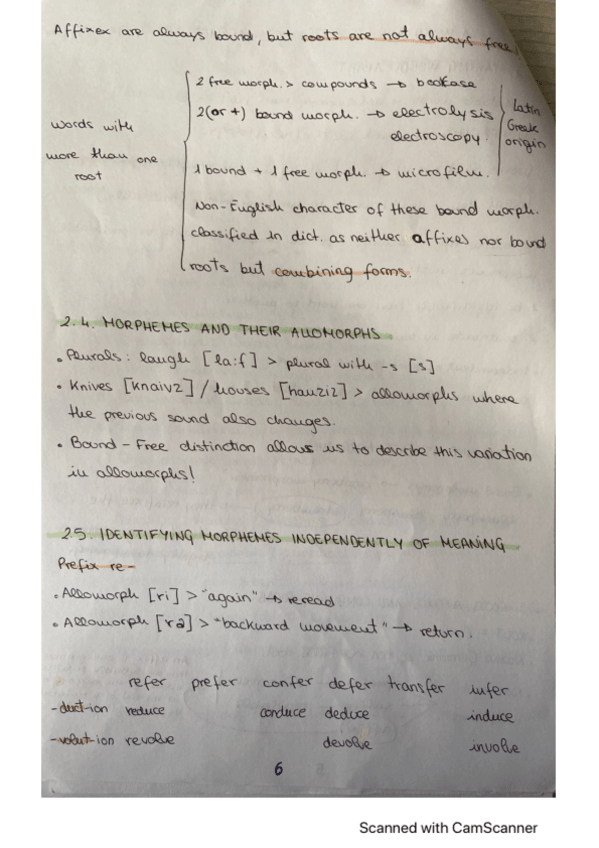 Affixex are always bound, but roots are not always free.
2 free morph. > compounds → bookcase
2(or +) bound morph. → electrolysis
electroscopy.
Latin
Greek
origin
words with
more than one
root
1 bound + 1 free morph. → microfilm.
Non-English character of these bound morph.
classified in dict. as neither affixes nor bound
roots but combining forms.
2.4. MORPHEMES AND THEIR ALLOMORPHS
• Plurals: laugh [la:f] > plural with -s [s]
• Knives [knaivz] / houses [hauziz] > allomorphs where
the previous sound also changes.
• Bound - Free distinction allows us to describe this variation
in allomorphs!
2.5. IDENTIFYING MORPHEMES INDEPENDENTLY OF MEANING
Prefix re-
• Allomorph [ri] > "again" → reread
• Allomorph [rə] > "backward movement" → return.
refer prefer confer defer transfer infer
-duct-ion reduce conduce deduce induce
-volut-ion revolve devolve involve
6
Scanned with CamScanner